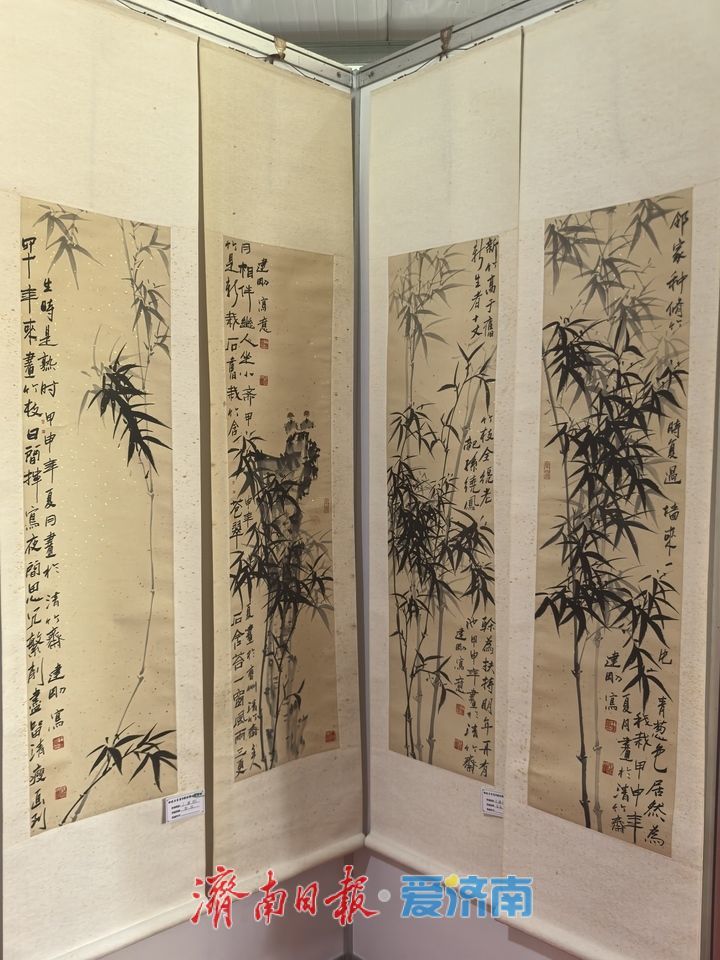 四十年來畫竹枝日間揮寫夜間思冗繁削盡留清瘦画到
生時是熟时甲申年夏月畫於清竹齋
建刚寫
竹是新栽石舊栽竹含蒼翠石含苔一窗風雨三更
月相伴幽人坐小斋甲申年夏畫於青州清竹齋主人
建刚寫意
新竹高于舊竹枝全凭老幹為扶持明年再有
新生者十丈龍孫繞鳳池甲申年畫於清竹齋
建刚寫意
邻家种修竹時复過墻來一片青葱色居然為
我栽甲申年夏月畫於清竹齋
建刚寫
濟南日報·爱济南